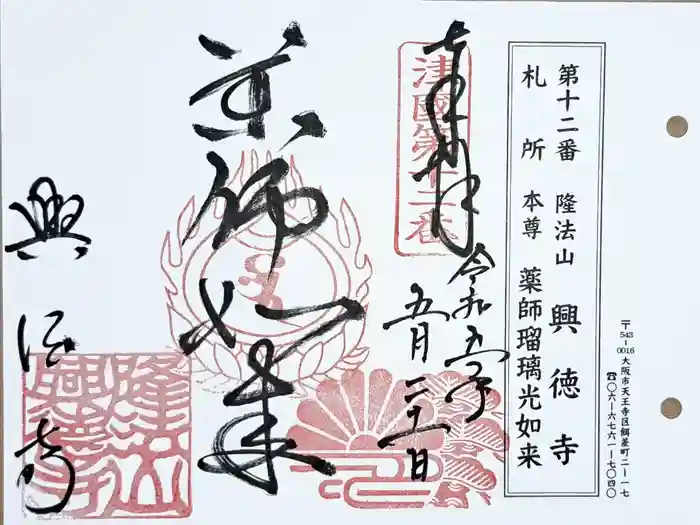 〒543-0016 大阪市天王寺区餌差町二ー一七
☎〇六ー六七六一ー七〇四〇
第十二番 隆法山 興徳寺
札所本尊 薬師瑠璃光如来
奉拝
津國第十二番
令和五年
五月二十一日
薬師如来
興徳寺
隆法山
興徳寺